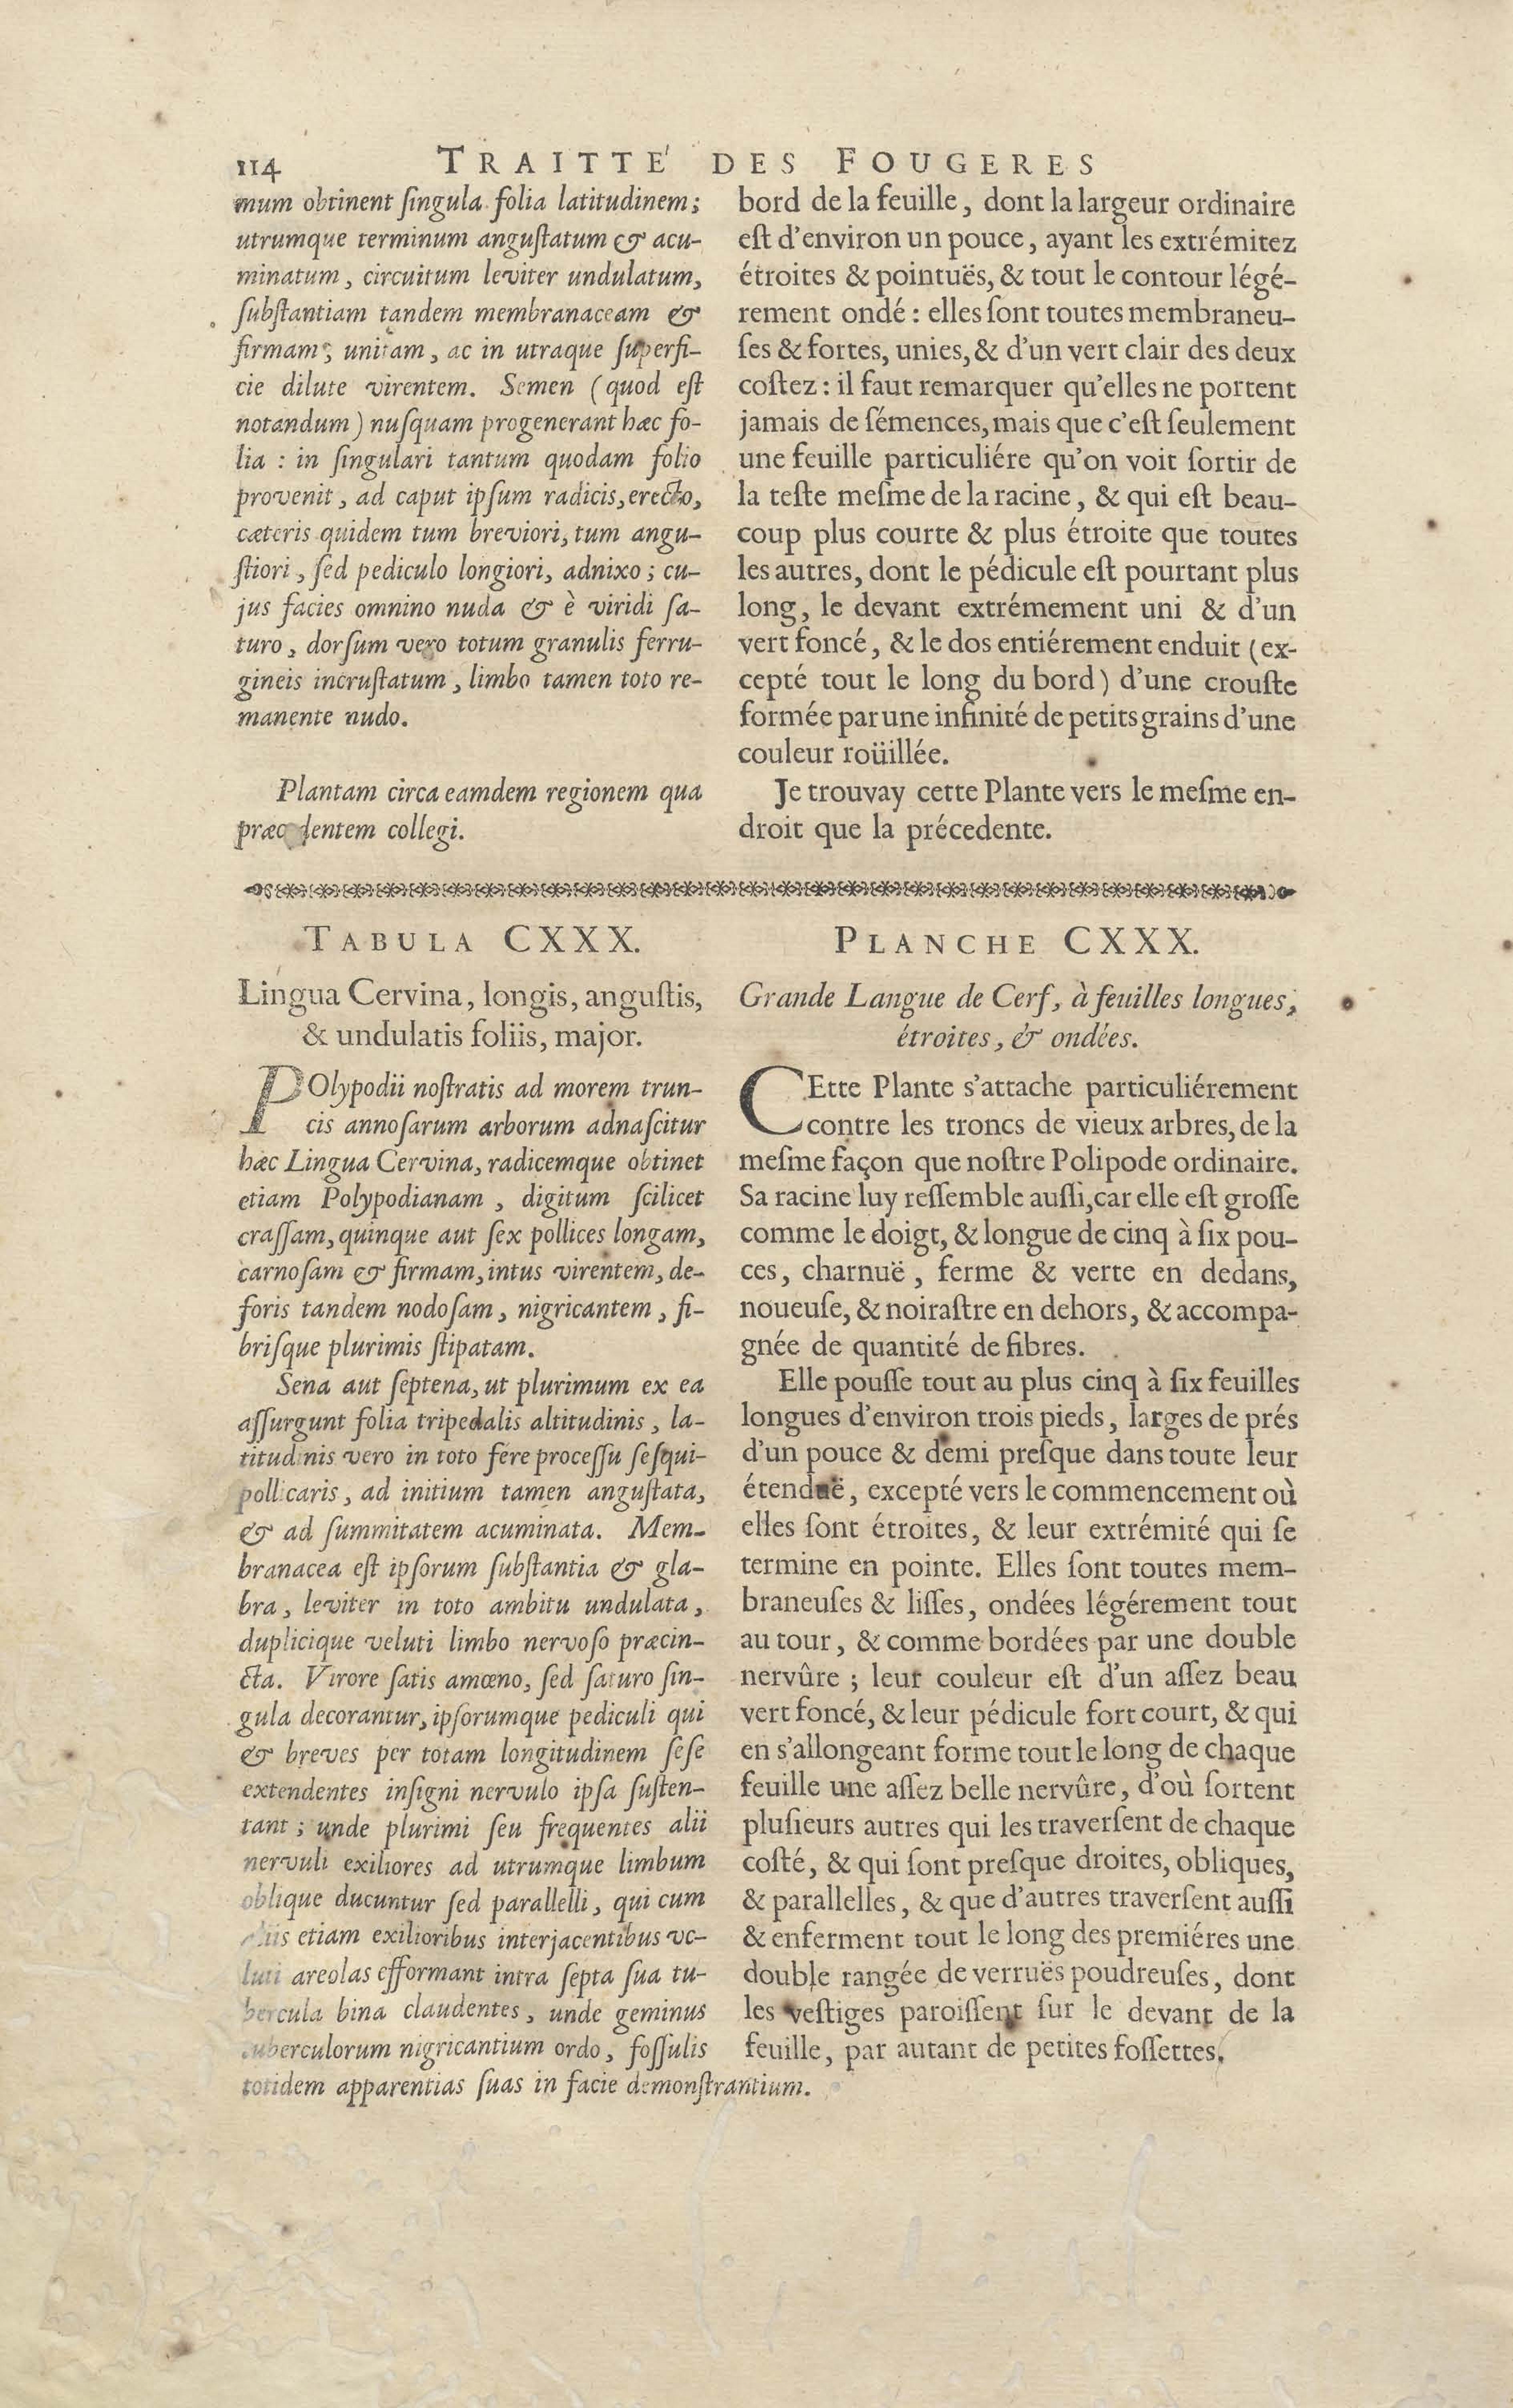 114 TRAITTE' DES FOUGERES
mum obtinent ſingula folia latitudinem;
utrumque terminum anguſtatum & acu-
minatum, circuitum leviter undulatum,
ſubſtantiam tandem membranaceam &
firmam, unitam, ac in utraque ſuperfi-
cie dilute virentem. Semen (quod eſt
notandum) nuſquam progenerant hæc fo-
lia : in ſingulari tantum quodam folio
provenit, ad caput ipſum radicis, erecto,
cæteris quidem tum breviori, tum angu-
ſtiori, ſed pediculo longiori, adnixo; cu-
jus facies omnino nuda & è viridi ſa-
turo, dorſum vero totum granulis ferru-
gineis incruſtatum, limbo tamen toto re-
manente nudo.
Plantam circa eamdem regionem qua
præcedentem collegi.
bord de la feuille, dont la largeur ordinaire
eſt d'environ un pouce, ayant les extrémitez
étroites & pointuës, & tout le contour légé-
rement ondé : elles ſont toutes membraneu-
ſes & fortes, unies, & d'un vert clair des deux
coſtez : il faut remarquer qu'elles ne portent
jamais de ſémences, mais que c'eſt ſeulement
une feuille particuliére qu'on voit ſortir de
la teſte meſme de la racine, & qui eſt beau-
coup plus courte & plus étroite que toutes
les autres, dont le pédicule eſt pourtant plus
long, le devant extrémement uni & d'un
vert foncé, & le dos entiérement enduit (ex-
cepté tout le long du bord) d'une crouſte
formée par une infinité de petits grains d'une
couleur roüillée.
Je trouvay cette Plante vers le meſme en-
droit que la précedente.
TABULA CXXX.
Lingua Cervina, longis, anguſtis,
& undulatis foliis, major.
POlypodii noſtratis ad morem trun-
cis annoſarum arborum adnaſcitur
hæc Lingua Cervina, radicemque obtinet
etiam Polypodianam, digitum ſcilicet
craſſam, quinque aut ſex pollices longam,
carnoſam & firmam, intus virentem, de-
foris tandem nodoſam, nigricantem, fi-
briſque plurimis ſtipatam.
Sena aut ſeptena, ut plurimum ex ea
aſſurgunt folia tripedalis altitudinis, la-
titudinis vero in toto fere proceſſu ſeſqui-
pollicaris, ad initium tamen anguſtata,
& ad ſummitatem acuminata. Mem-
branacea eſt ipſorum ſubſtantia & gla-
bra, leviter in toto ambitu undulata,
duplicique veluti limbo nervoſo præcin-
cta. Virore ſatis amœno, ſed ſaturo ſin-
gula decorantur, ipſorumque pediculi qui
& breves per totam longitudinem ſeſe
extendentes inſigni nervulo ipſa ſuſten-
tant ; unde plurimi ſeu frequentes alii
nervuli exiliores ad utrumque limbum
oblique ducuntur ſed parallelli, qui cum
aliis etiam exilioribus interjacentibus ve-
luti areolas efformant intra ſepta ſua tu-
bercula bina claudentes, unde geminus
tuberculorum nigricantium ordo, foſſulis
totidem apparentias ſuas in facie demonſtrantium.
PLANCHE CXXX.
Grande Langue de Cerf, à feuilles longues,
étroites, & ondées.
CEtte Plante s'attache particuliérement
contre les troncs de vieux arbres, de la
meſme façon que noſtre Polipode ordinaire.
Sa racine luy reſſemble auſſi, car elle eſt groſſe
comme le doigt, & longue de cinq à ſix pou-
ces, charnuë, ferme & verte en dedans,
noueuſe, & noiraſtre en dehors, & accompa-
gnée de quantité de fibres.
Elle pouſſe tout au plus cinq à ſix feuilles
longues d'environ trois pieds, larges de prés
d'un pouce & demi preſque dans toute leur
étenduë, excepté vers le commencement où
elles ſont étroites, & leur extrémité qui ſe
termine en pointe. Elles ſont toutes mem-
braneuſes & liſſes, ondées légérement tout
au tour, & comme bordées par une double
nervûre ; leur couleur eſt d'un aſſez beau
vert foncé, & leur pédicule fort court, & qui
en s'allongeant forme tout le long de chaque
feuille une aſſez belle nervûre, d'où ſortent
pluſieurs autres qui les traverſent de chaque
coſté, & qui ſont preſque droites, obliques,
& parallelles, & que d'autres traverſent auſſi
& enferment tout le long des premiéres une
double rangée de verruës poudreuſes, dont
les veſtiges paroiſſent ſur le devant de la
feuille, par autant de petites foſſettes.